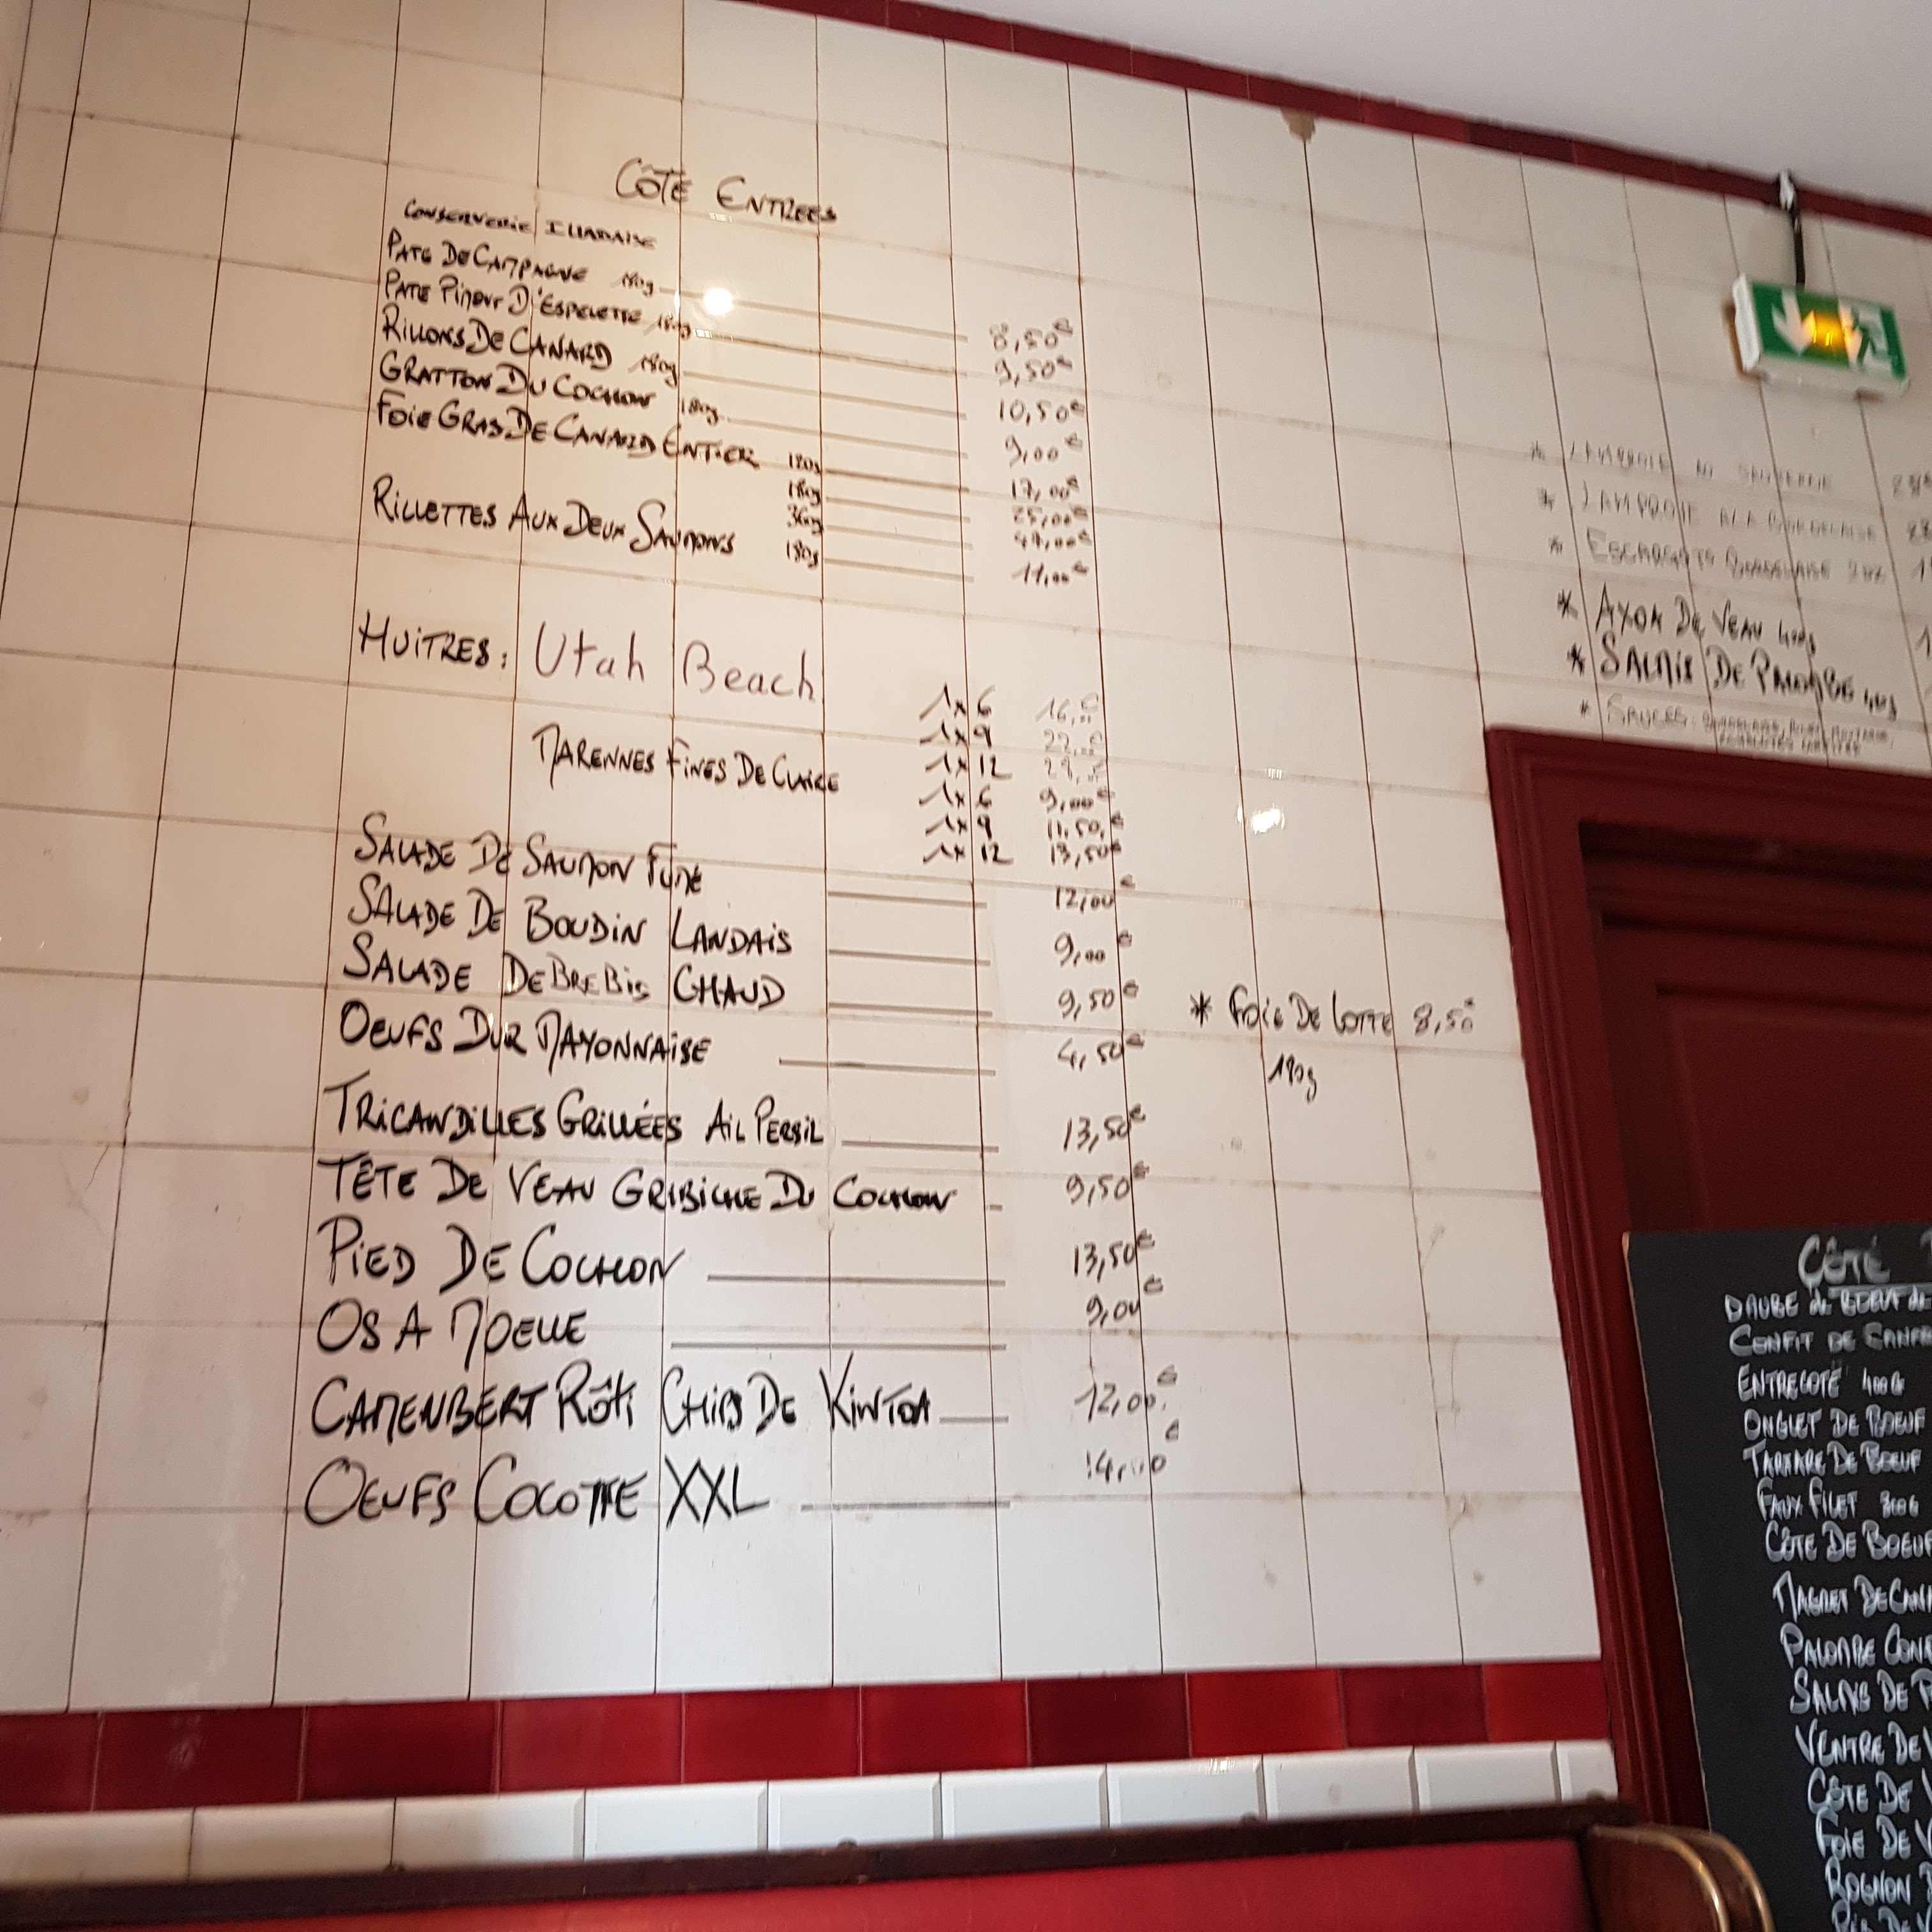 CÔTÉ ENTREES
CONSERVERIE
PATE DE CAMPAGNE 180g 8,50€
PATE PIMENT D'ESPELETTE 180g 9,50€
RILLONS DE CANARD 180g 10,50€
GRATTON DU COCHON 180g 9,00€
FOIE GRAS DE CANARD ENTIER 120g 17,00€
180g 25,00€
360g
RILLETTES AUX DEUX SAUMONS 180g 11,00€
HUITRES: Utah Beach
1x6 16,00
1x9 22,00
1x12
MARENNES FINES DE CLAIRE
1x6 9,00€
1x9 11,50€
1x12 13,50€
SALADE DE SAUMON FUMÉ 12,00€
SALADE DE BOUDIN LANDAIS 9,00€
SALADE DE BREBIS CHAUD 9,50€
OEUFS DUR MAYONNAISE 4,50€
TRICANDILLES GRILLÉES AIL PERSIL 13,50€
TÊTE DE VEAU GRIBICHE DU COCHON 9,50€
PIED DE COCHON 13,50€
OS A MOELLE 9,00€
CAMEMBERT RÔTI CHIPS DE KINTOA 12,00€
OEUFS COCOTTE XXL 14,00€
* FOIE DE LOTTE 8,50
180g
* LAMPROIE AU SAUTERNE
* LAMPROIE A LA BORDELAISE
* ESCARGOTS BORDELAISE
* AXOA DE VEAU
* SALMIS DE PALOMBE
* SAUCES:
CÔTÉ
DAUBE de BOEUF de
CONFIT DE CANA
ENTRECOTE 400G
ONGLET DE BOEUF
TARTARE DE BOEUF
FAUX FILET 300G
CÔTE DE BOEUF
MAGRET DE CAN
PALOMBE CON
SALMIS DE P
VENTRE DE
CÔTE DE
FOIE DE V
ROGNON